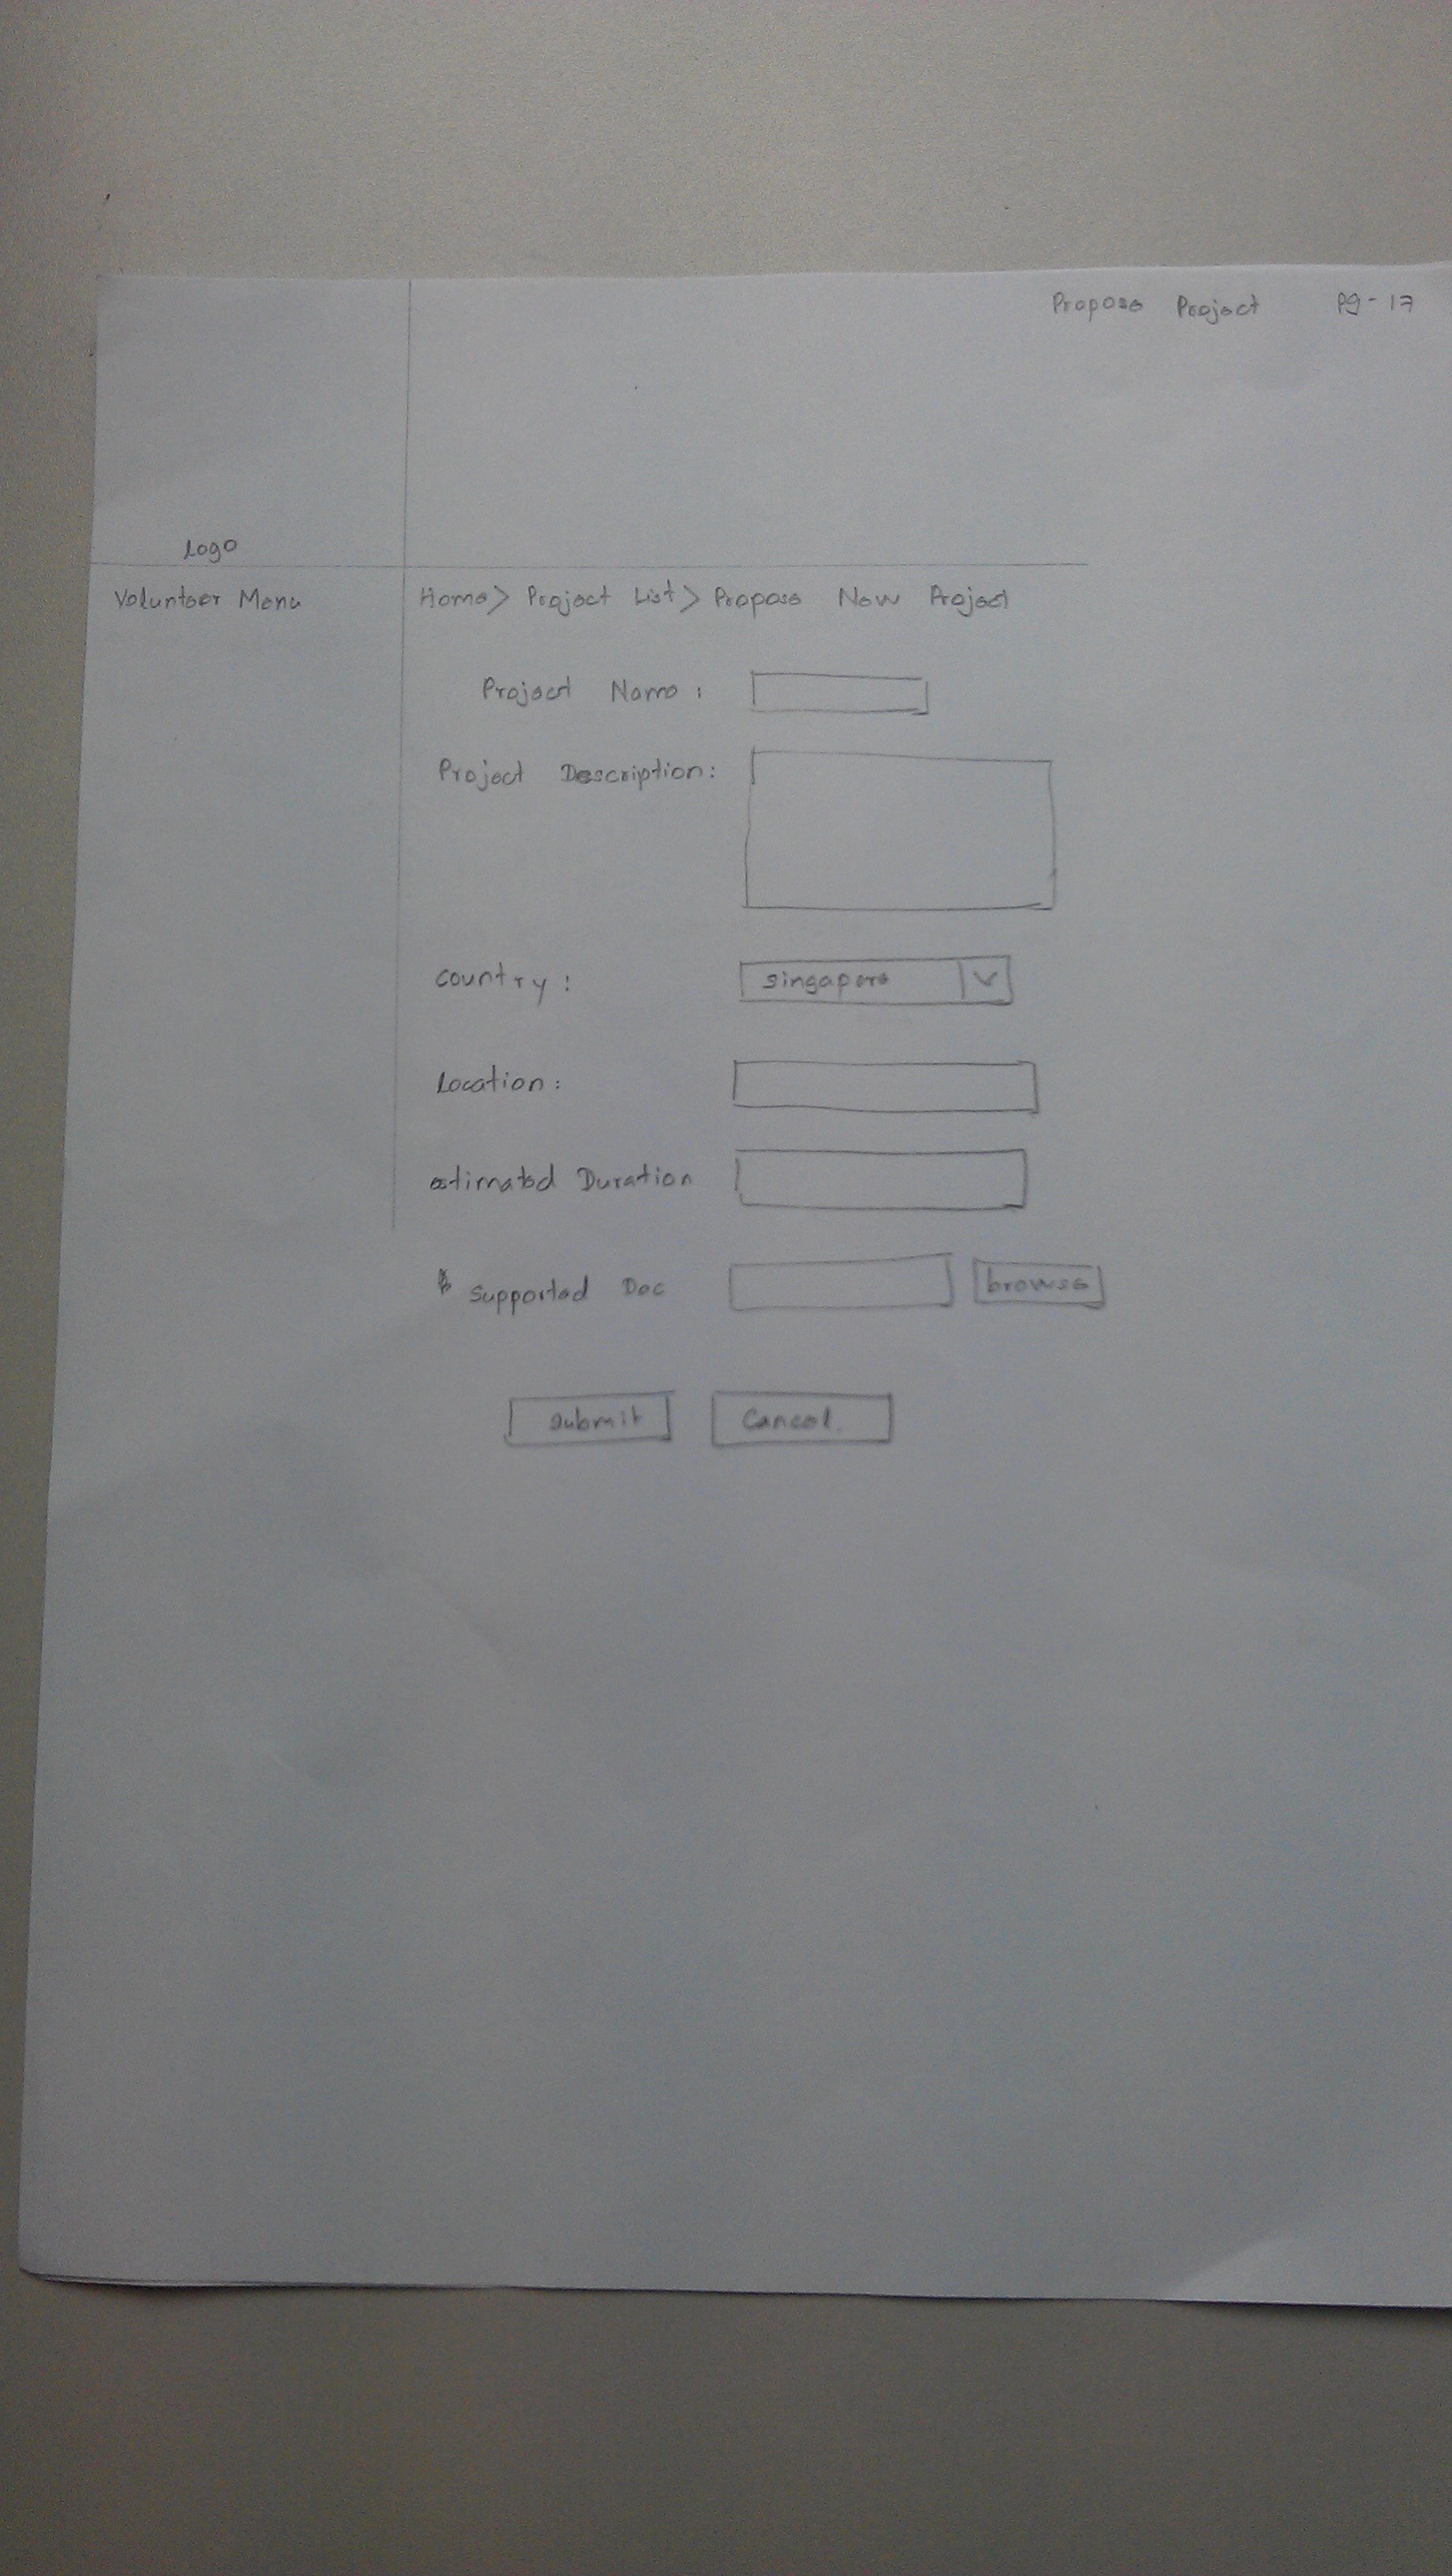 Propose Project Pg-17
Logo
Volunteer Menu
Home> Project List> Propose New Project
Project Name:
Project Description:
Country: Singapore
Location:
estimated Duration
Supported Doc browse
submit Cancel.